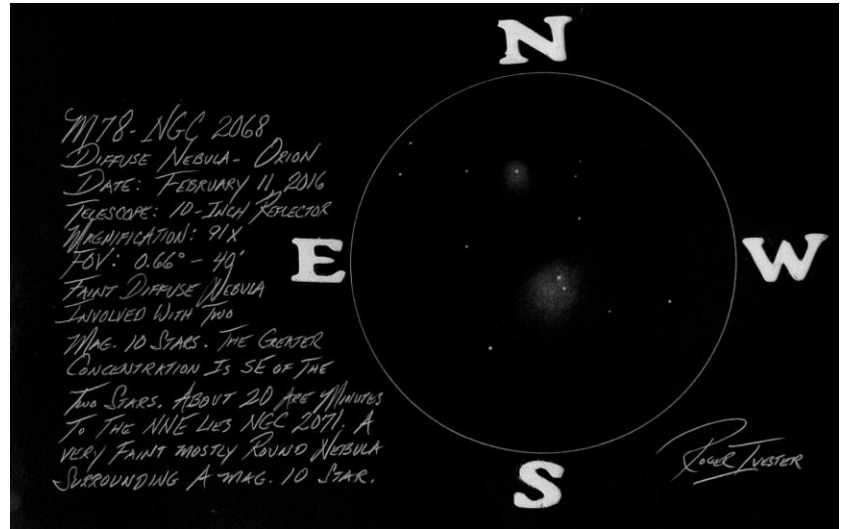 M78-NGC 2068
DIFFUSE NEBULA- ORION
DATE: FEBRUARY 11, 2016
TELESCOPE: 10-INCH REFLECTOR
MAGNIFICATION: 91X
FOV: 0.66° - 40'
FAINT DIFFUSE NEBULA
INVOLVED WITH TWO
MAG. 10 STARS. THE GREATER
CONCENTRATION IS SE OF THE
TWO STARS. ABOUT 20 ARC MINUTES
TO THE NNE LIES NGC 2071, A
VERY FAINT MOSTLY ROUND NEBULA
SURROUNDING A MAG. 10 STAR.
N
E
W
S
ROGER IVESTER